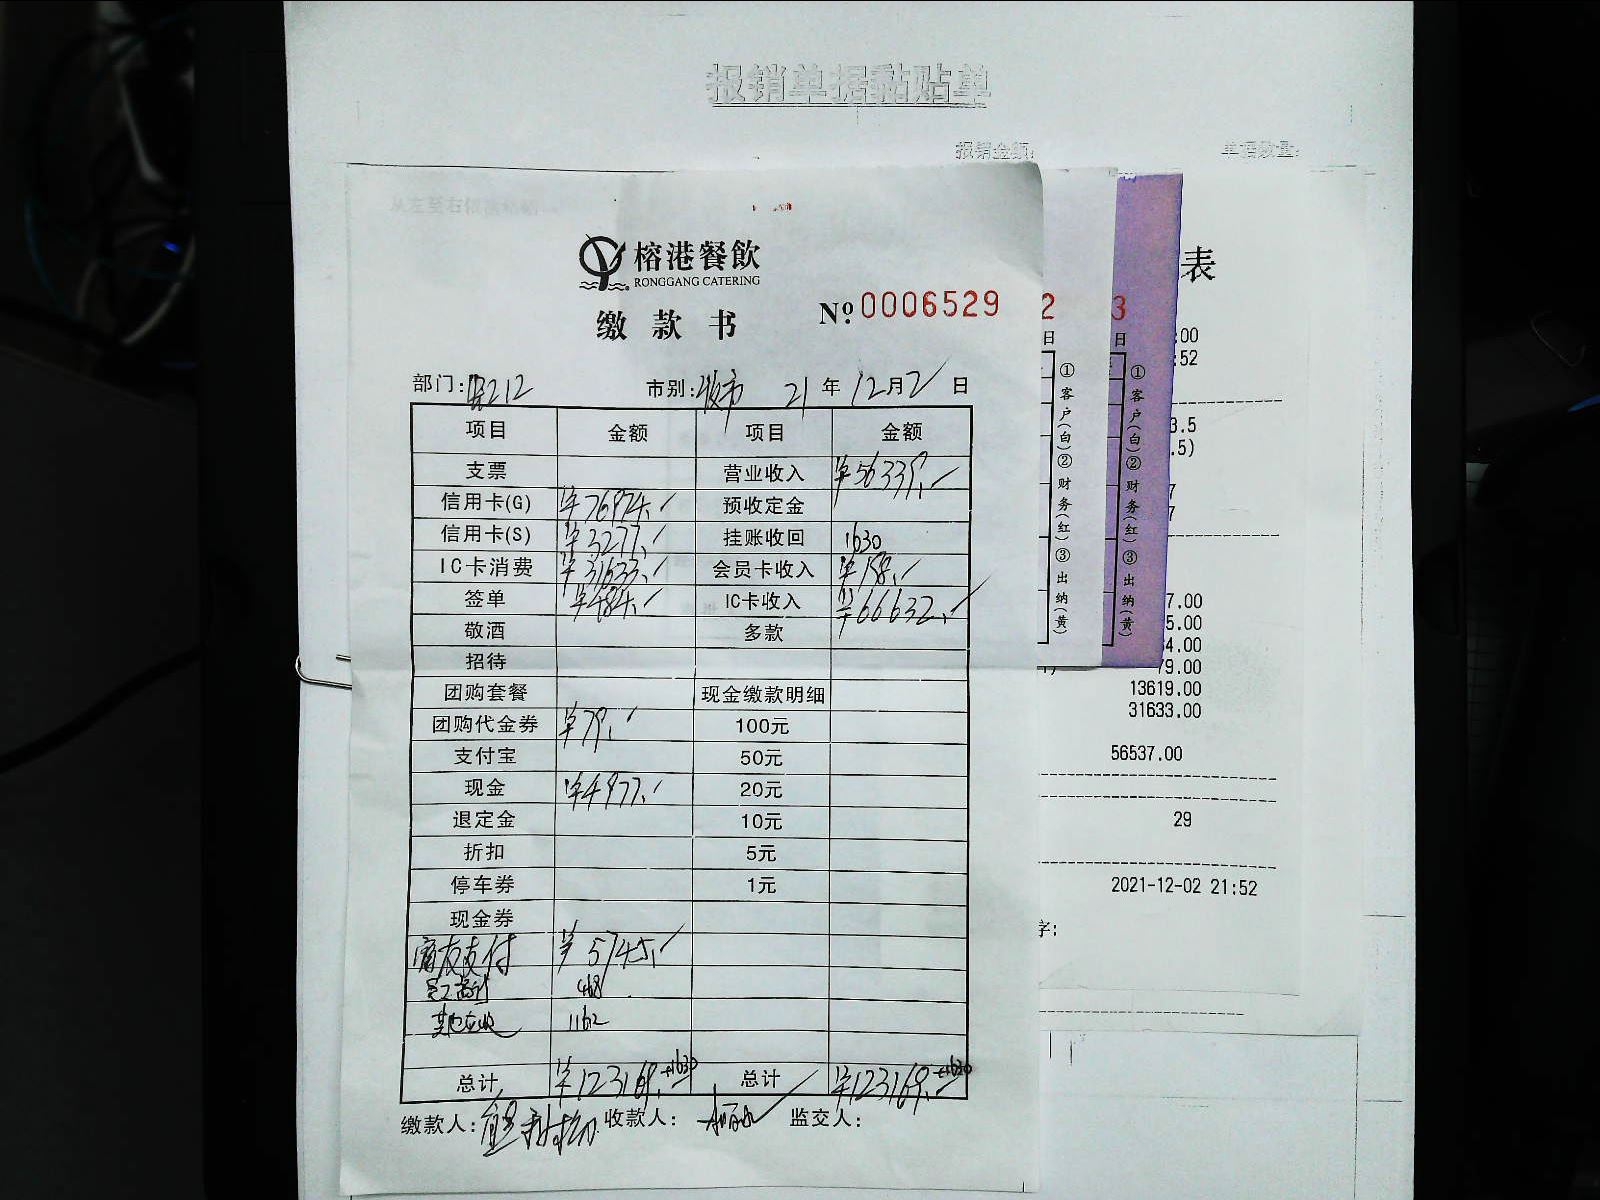 报销单据黏贴单
报销金额: 单据数量:
榕港餐飲
RONGGANG CATERING
缴款书 №0006529 2 3
表
日 日
:00
:52
部门: 212 市别: 夜市 21年12月2日
项目 金额 项目 金额
支票 营业收入 ¥56339.
信用卡(G) ¥76974. 预收定金
信用卡(S) ¥3277. 挂账收回 1630
IC卡消费 ¥31633. 会员卡收入 ¥198.
签单 ¥484. IC卡收入 ¥66632.
敬酒 多款
招待
团购套餐 现金缴款明细
团购代金券 ¥79. 100元
支付宝 50元
现金 ¥4977. 20元
退定金 10元
折扣 5元
停车券 1元
现金券
支付 ¥5745.
468
其他应收 1162
总计 ¥123169.+1630 总计 ¥123169.+1630
缴款人: 收款人: 监交人:
①客户(白)②财务(红)③出纳(黄)
①客户(白)②财务(红)③出纳(黄)
3.5
.5)
7
7
7.00
5.00
4.00
79.00
13619.00
31633.00
56537.00
29
2021-12-02 21:52
字: